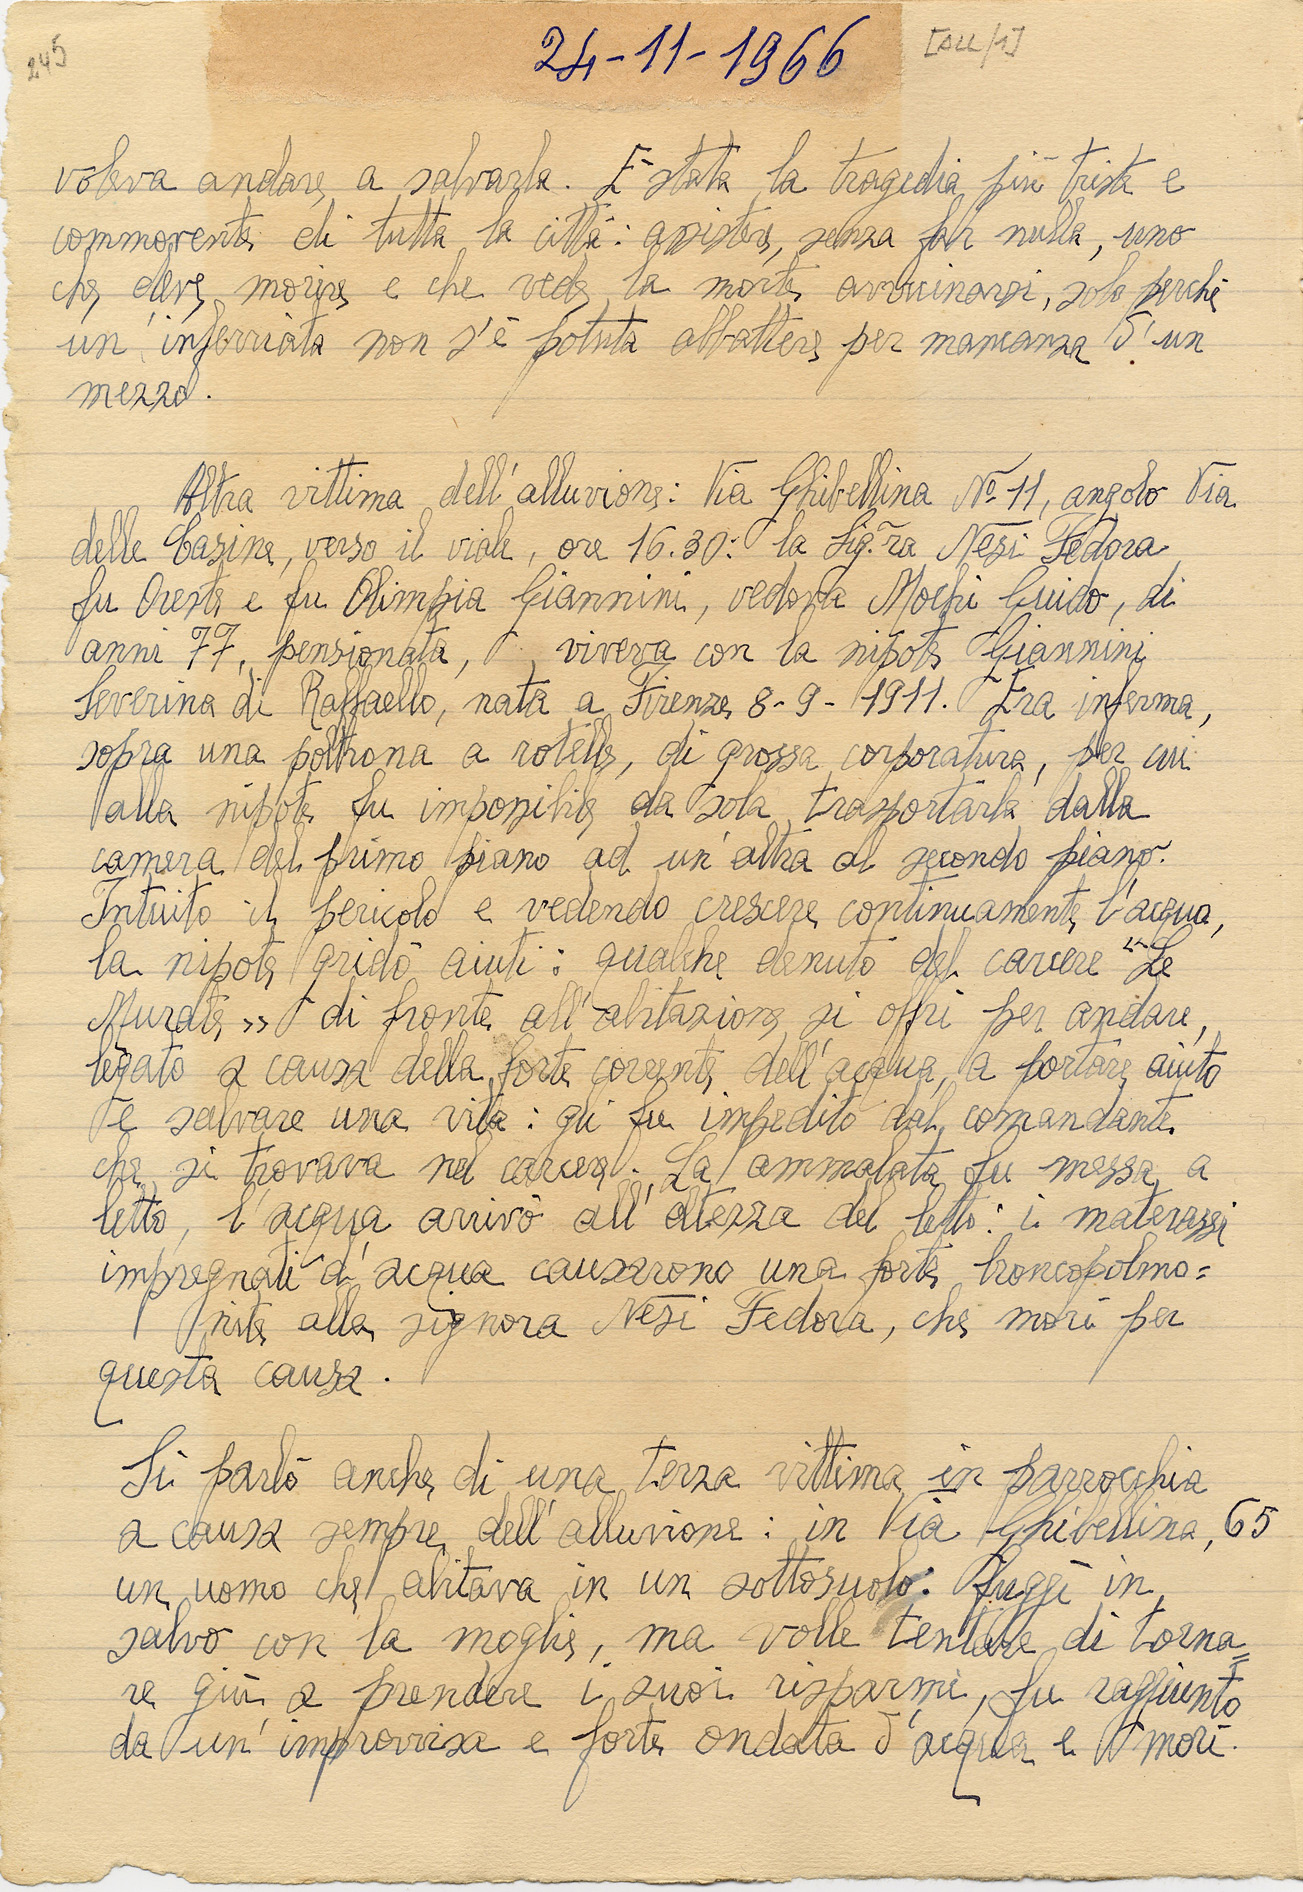 245
24-11-1966
[ALL/1]
voleva andare a salvarla. È stata la tragedia più trista e
commovente di tutta la città: assistere, senza far nulla, uno
che deve morire e che vede la morte avvicinarsi, solo perchè
un'inferriata non s'è potuta abbattere per mancanza d'un
mezzo.
Altra vittima dell'alluvione: Via Ghibellina Nº 11, angolo Via
delle Casine, verso il viale, ore 16.30: la Sig.ra Nesi Fedora
fu Oreste e fu Olimpia Giannini, vedova Mochi Guido, di
anni 77, pensionata, viveva con la nipote Giannini
Severina di Raffaello, nata a Firenze 8-9-1911. Era inferma,
sopra una poltrona a rotelle, di grossa corporatura, per cui
alla nipote fu impossibile da sola trasportarla dalla
camera del primo piano ad un'altra al secondo piano.
Intuito il pericolo e vedendo crescere continuamente l'acqua,
la nipote gridò aiuti: qualche denuto del carcere "Le
Murate" di fronte all'abitazione si offrì per andare,
legato a causa della forte corrente dell'acqua, a portare aiuto
e salvare una vita: gli fu impedito dal comandante
che si trovava nel carcere. La ammalata fu messa a
letto, l'acqua arrivò all'altezza del letto: i materassi
impregnati d'acqua causarono una forte broncopolmo=
nite alla signora Nesi Fedora, che morì per
questa causa.
Si parlò anche di una terza vittima in parrocchia
a causa sempre dell'alluvione: in Via Ghibellina, 65
un uomo che abitava in un sottosuolo. Fuggì in
salvo con la moglie, ma volle tentare di torna=
re giù a prendere i suoi risparmi, fu raggiunto
da un'improvvisa e forte ondata d'acqua e morì.